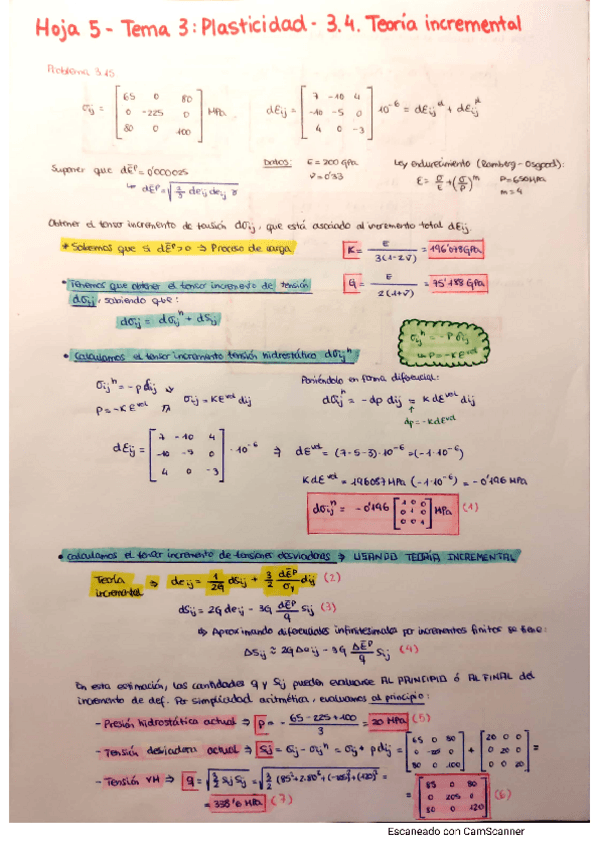 Hoja 5 - Tema 3: Plasticidad - 3.4. Teoría incremental
Problema 3.15
σij = [65 0 80; 0 -225 0; 80 0 100] MPa   dEij = [7 -10 4; -10 -5 0; 4 0 -3] 10^-6 = dEij^el + dEij^pl
Suponer que dĒP = 0'000025   Datos: E = 200 GPa   Ley endurecimiento (Ramberg-Osgood):
↳ dĒP = √(2/3 deij deij)   ν = 0'33   E = σ/E + (σ/P)^m   P = 650 MPa
m = 4
Obtener el tensor incremento de tensión dσij, que está asociado al incremento total dEij.
* Sabemos que si dĒP > 0 ⇒ Proceso de carga   K = E / 3(1-2ν) = 196'078 GPa
• Tenemos que obtener el tensor incremento de tensión   G = E / 2(1+ν) = 75'188 GPa
dσij, sabiendo que:
dσij = dσij^h + dSij
σij^h = -P dij
↳ P = -K E^vol
• Calculamos el tensor incremento tensión hidrostático dσij^h
Poniéndolo en forma diferencial:
σij^h = -p dij
P = -K E^vol   σij = K E^vol dij   dσij^h = -dp dij = K dE^vol dij
dp = -K dE^vol
dEij = [7 -10 4; -10 -5 0; 4 0 -3] · 10^-6 ⇒ dE^vol = (7-5-3)·10^-6 = (-1·10^-6)
K dE^vol = 196087 MPa (-1·10^-6) = -0'196 MPa
dσij^h = -0'196 [1 0 0; 0 1 0; 0 0 1] MPa (1)
• Calculamos el tensor incremento de tensiones desviadoras ⇒ USANDO TEORÍA INCREMENTAL
Teoría incremental ⇒ deij = 1/2G dSij + 3/2 dĒP/σy dij (2)
dSij = 2G deij - 3G dĒP/q Sij (3)
⇒ Aproximando diferenciales infinitesimales por incrementos finitos se tiene:
ΔSij ≈ 2G Δeij - 3G ΔĒP/q Sij (4)
En esta estimación, las cantidades q y Sij pueden evaluarse AL PRINCIPIO ó AL FINAL del
incremento de def. Por simplicidad aritmética, evaluamos al principio:
- Presión hidrostática actual ⇒ P = - (65 - 225 + 100)/3 = 20 MPa (5)
- Tensión desviadora actual ⇒ Sij = σij - σij^h = σij + p dij = [65 0 80; 0 -225 0; 80 0 100] + [20 0 0; 0 20 0; 0 0 20] =
- Tensión VM ⇒ q = √(3/2 Sij Sij) = √(3/2 (85² + 2·80² + (-205)² + (120)²) =   = [85 0 80; 0 205 0; 80 0 120] (6)
= 338'6 MPa (7)
Escaneado con CamScanner